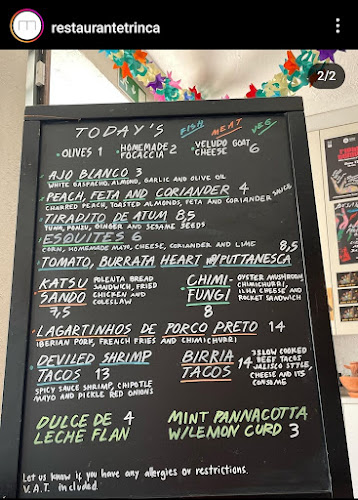 restaurantetrinca
2/2
TODAY'S FISH MEAT VEG
• OLIVES 1 • HOMEMADE FOCACCIA 2 • VELUDO GOAT CHEESE 6
• AJO BLANCO 3
WHITE GASPACHO, ALMOND, GARLIC AND OLIVE OIL
• PEACH, FETA AND CORIANDER 4
CHARRED PEACH, TOASTED ALMONDS, FETA AND CORIANDER SAUCE
• TIRADITO DE ATUM 8,5
TUNA, PONZU, GINGER AND SESAME SEEDS
• ESQUITES 6
CORN, HOMEMADE MAYO, CHEESE, CORIANDER AND LIME
• TOMATO, BURRATA HEART W/PUTTANESCA 8,5
• KATSU SANDO 7,5
POLENTA BREAD
SANDWICH, FRIED
CHICKEN AND
COLESLAW
• CHIMI-FUNGI 8
OYSTER MUSHROOM,
CHIMICHURRI,
ILHA CHEESE AND
ROCKET SANDWICH
• LAGARTINHOS DE PORCO PRETO 14
IBERIAN PORK, FRENCH FRIES AND CHIMICHURRI
• DEVILED SHRIMP
TACOS 13
SPICY SAUCE SHRIMP, CHIPOTLE
MAYO AND PICKLE RED ONIONS
• BIRRIA
TACOS 14
3 SLOW COOKED
BEEF TACOS
JALISCO STYLE,
CHEESE AND ITS
CONSOMÉ
DULCE DE 4
LECHE FLAN
MINT PANNACOTTA
W/LEMON CURD 3
Let us know if you have any allergies or restrictions.
V.A.T. included.